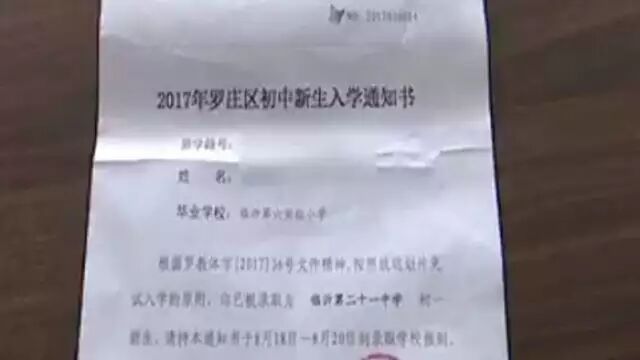 NO. 2017
2017年罗庄区初中新生入学通知书
姓 名:
毕业学校: 临沂第六实验小学
根据罗教体字[2017]36号文件精神,按照就近划片免
试入学的原则, 你已被录取为 临沂第二十一中学 初一
新生, 请持本通知书于8月18日—8月20日到录取学校报到。